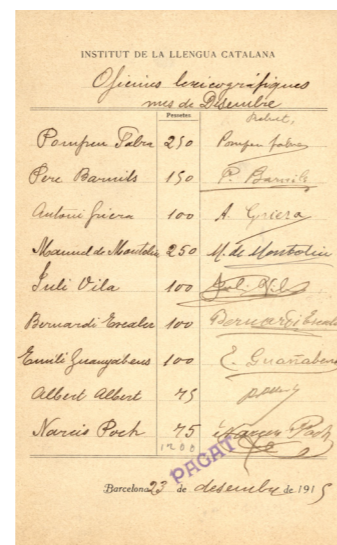 INSTITUT DE LA LLENGUA CATALANA
Oficines lexicogràfiques
mes de Desembre
Pessetes. Rebut,
Pompeu Fabra 250 Pompeu Fabra
Pere Barnils 150 P. Barnils
Antoni Griera 100 A. Griera
Manuel de Montoliu 250 M. de Montoliu
Juli Vila 100
Bernardí Escaler 100 Bernardí Escale
Emili Guanyabens 100 E. Guañabens
Albert Albert 75
Narcís Poch 75 Narcís Poch
1200
PAGAT
Barcelona 23 de desembre de 1915